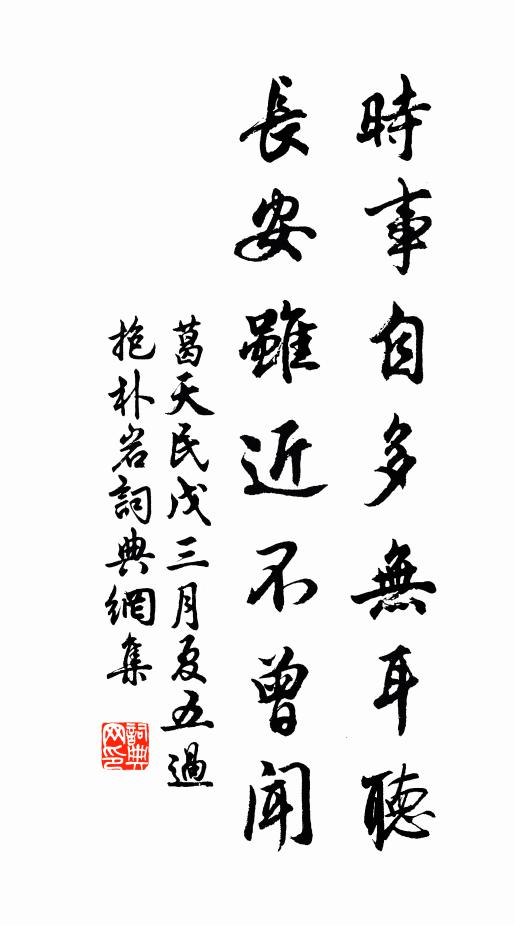 時事自多無耳聽
長安雖近不曾聞
葛天民戊三月夏五過
抱朴岩詞典網集
詞典
网印